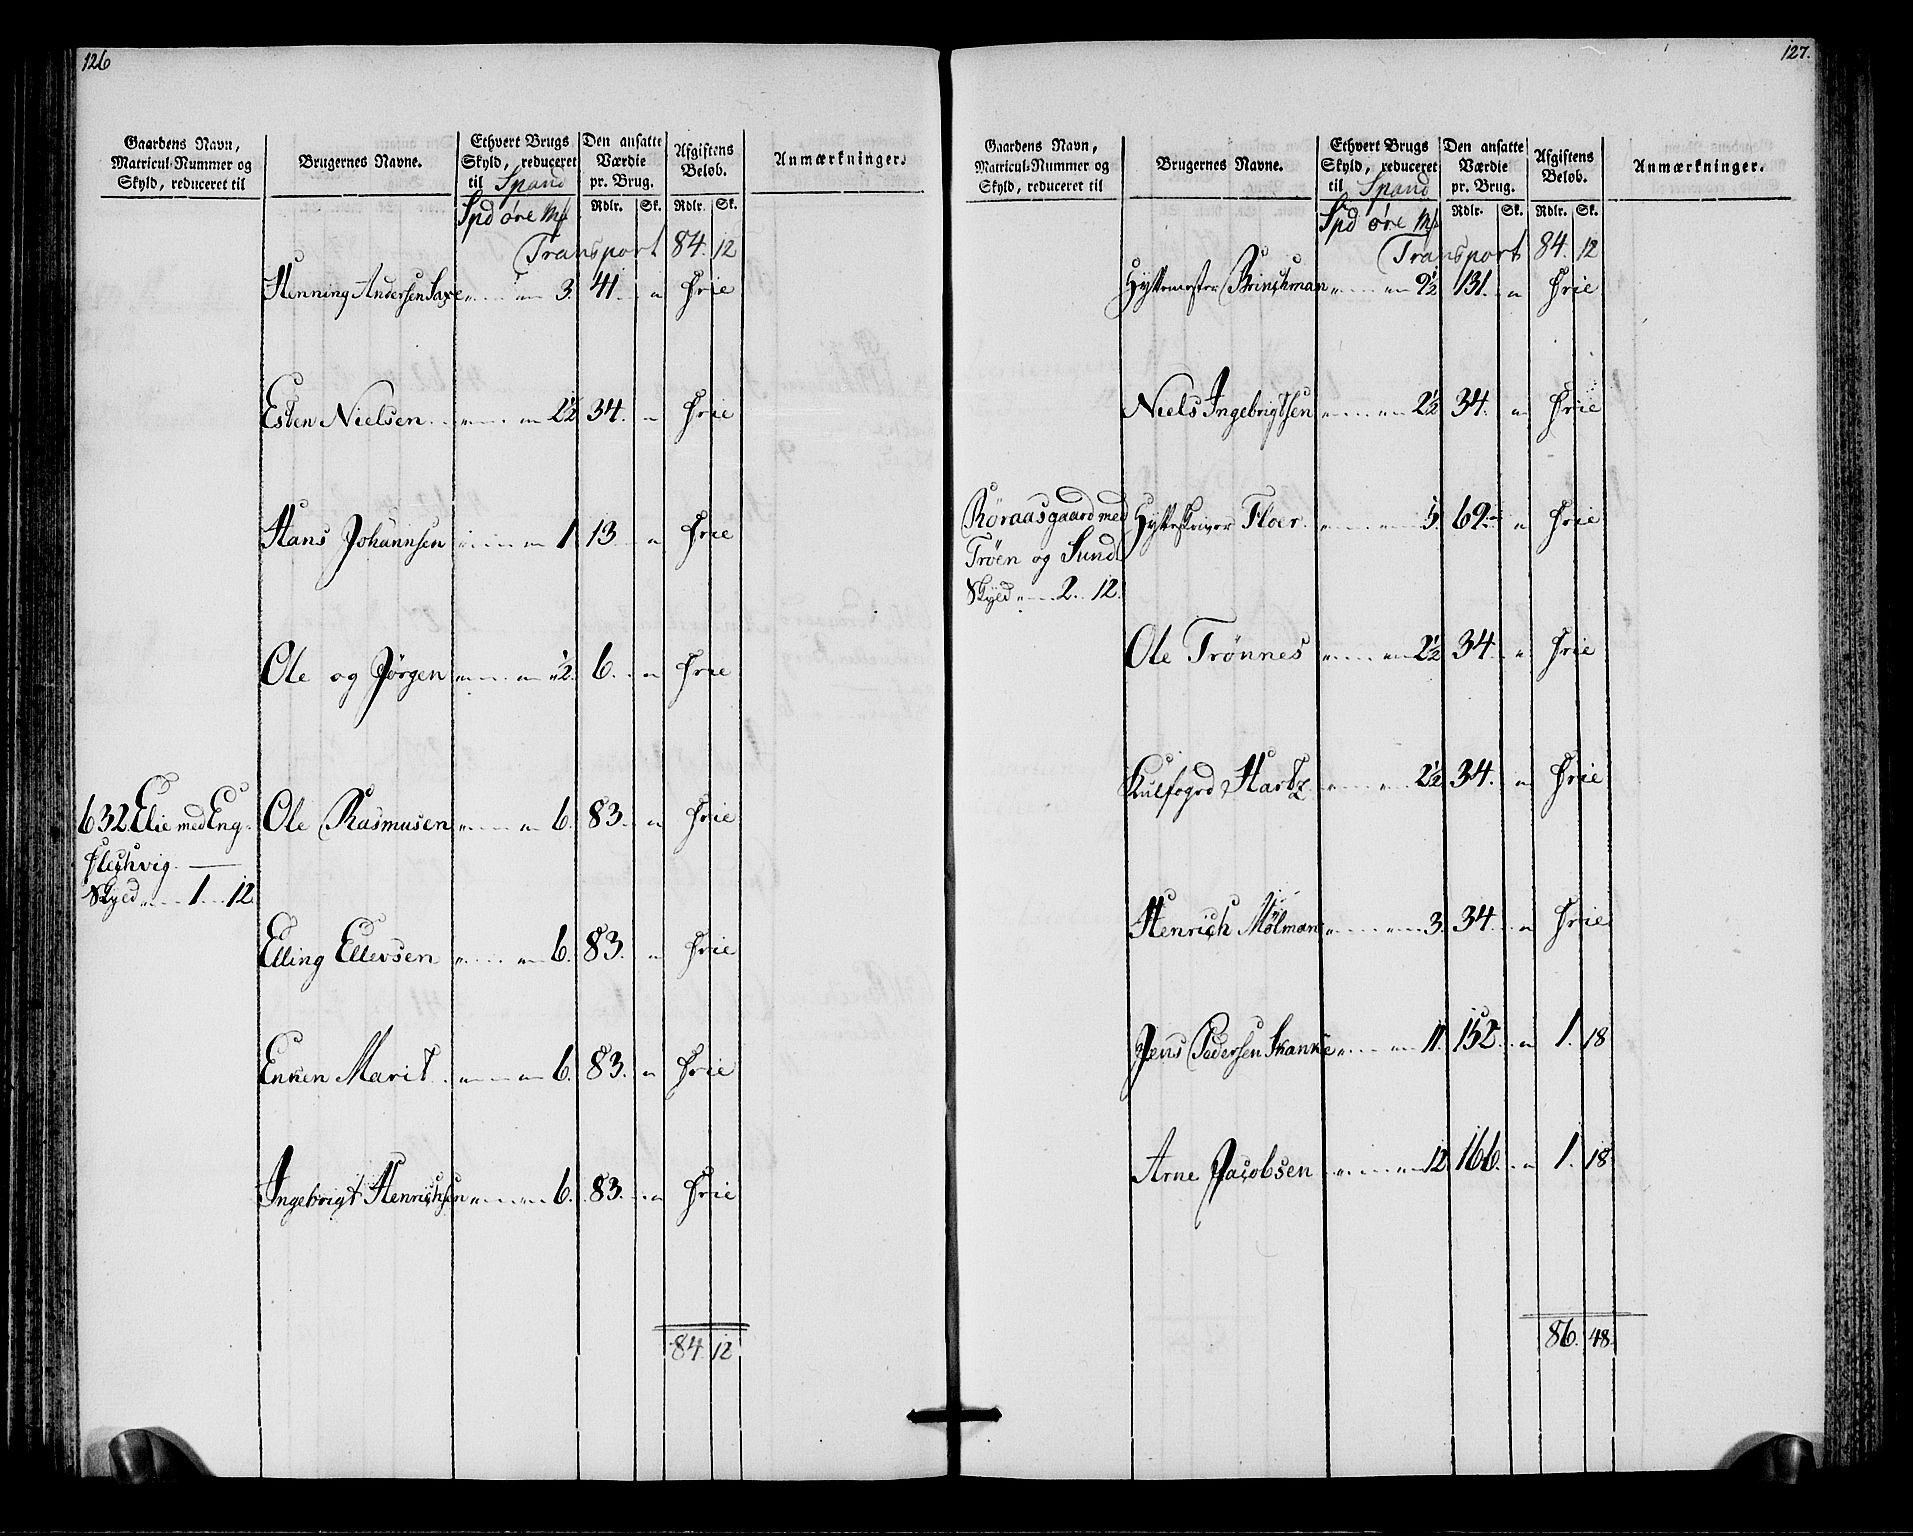 126
Gaardens Navn,
Matricul-Nummer og
Skyld, reduceret til
Brugernes Navne.
Ethvert Brugs
Skyld, reduceret
til Spand
Spd øre Mk
Den ansatte
Værdie
pr. Brug.
Rdlr. Sk.
Afgiftens
Beløb.
Rdlr. Sk.
Anmærkninger.
Transport 84. 12
Henning Andersen Saxe " " 3. 41. " frie
Esten Nielsen " " 2½ 34. " frie
Hans Johannsen " " 1. 13 " frie
Ole og Jørgen " " ½ 6. " frie
632. Elie med Eng- Ole Rasmusen " " 6. 83. " frie
flechvig
Skyld " 1. 12.
Elling Ellevsen " " 6. 83. " frie
Enken Marit " " 6. 83. " frie
Ingebrigt Henrichsen " " 6. 83. " frie
84. 12
127.
Gaardens Navn,
Matricul-Nummer og
Skyld, reduceret til
Brugernes Navne.
Ethvert Brugs
Skyld, reduceret
til Spand
Spd øre Mk
Den ansatte
Værdie
pr. Brug.
Rdlr. Sk.
Afgiftens
Beløb.
Rdlr. Sk.
Anmærkninger.
Transport 84. 12
Hyttemester Brinchman " " 9½ 131. " frie
Niels Ingebrigtsen " " 2½ 34. " frie
Røraasgaard med Hytteskriver Floer " " 5 69. " frie
Trøen og Sund
Skyld " 2. 12.
Ole Trønnes " " 2½ 34. " frie
Kulfogd Hartz " " 2½ 34. " frie
Henrich Mølman " " 3. 34. " frie
Jens Pedersen Skanke " " 11. 152. " 1. 18
Arne Jacobsen " " 12 166. " 1. 18.
86. 48.